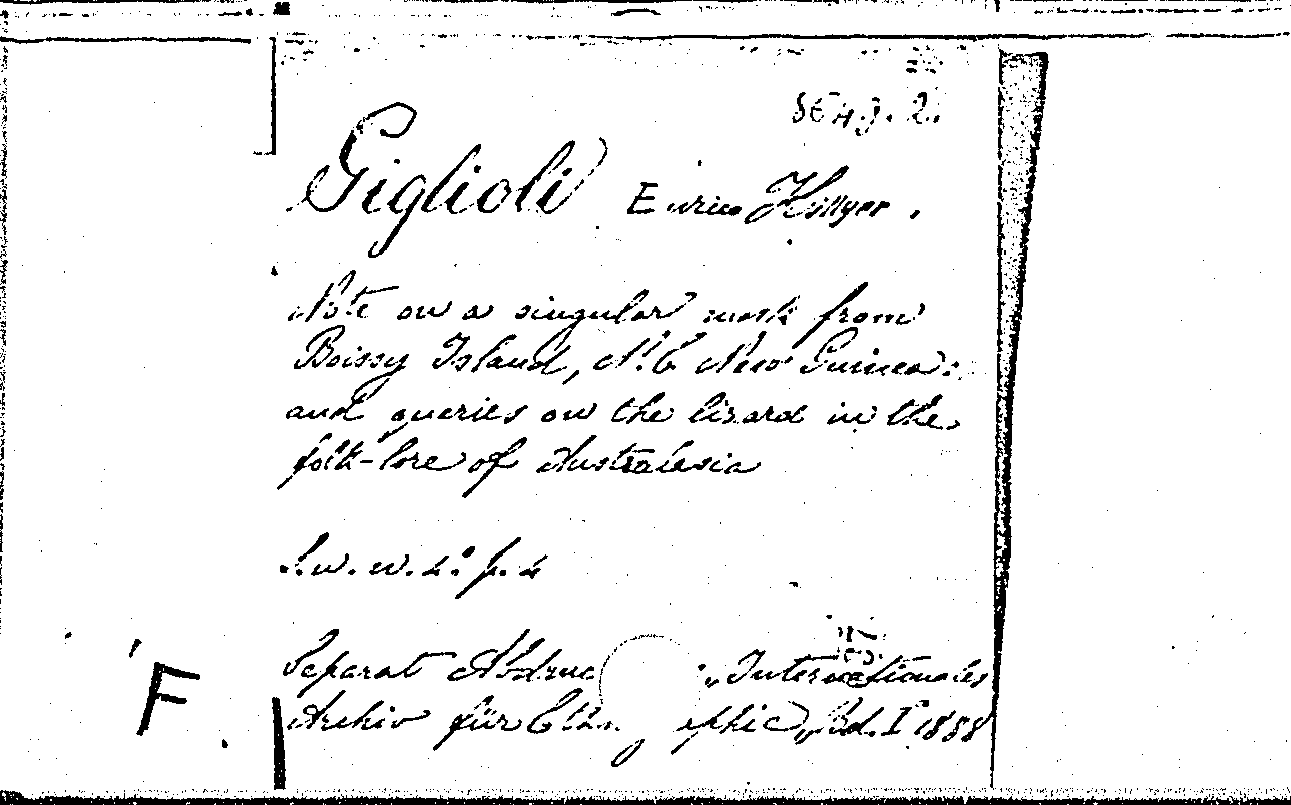 Giglioli Enrico Hillyer.
Note on a singular mask from
Boissy Island, N.E New Guinea:
and queries on the lizard in the
folk-lore of Australasia
4º p. 4
Separat Abdruc „Internationales
Archiv für Ethn ographie„ Bd. I 1888
F